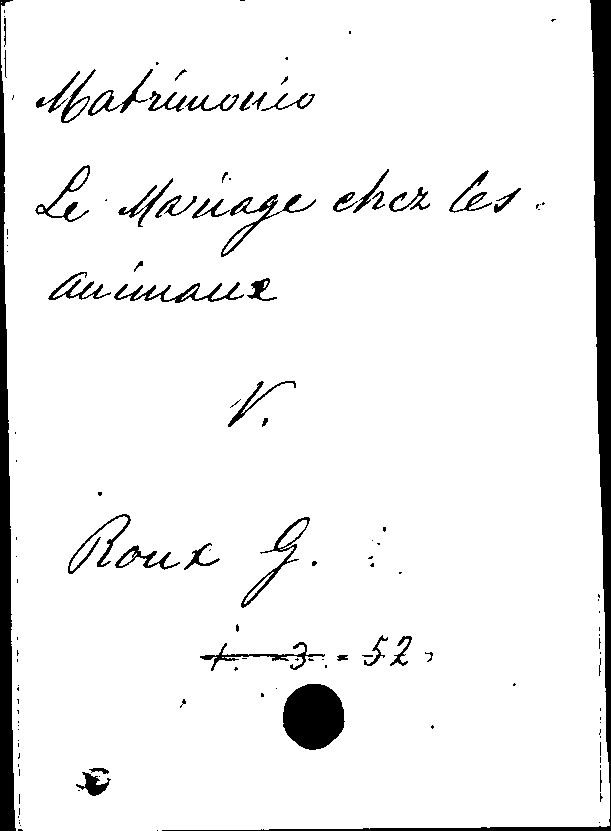 Matrimonio
Le Mariage chez les
animaux
V.
Roux G.
1. - 3. - 52